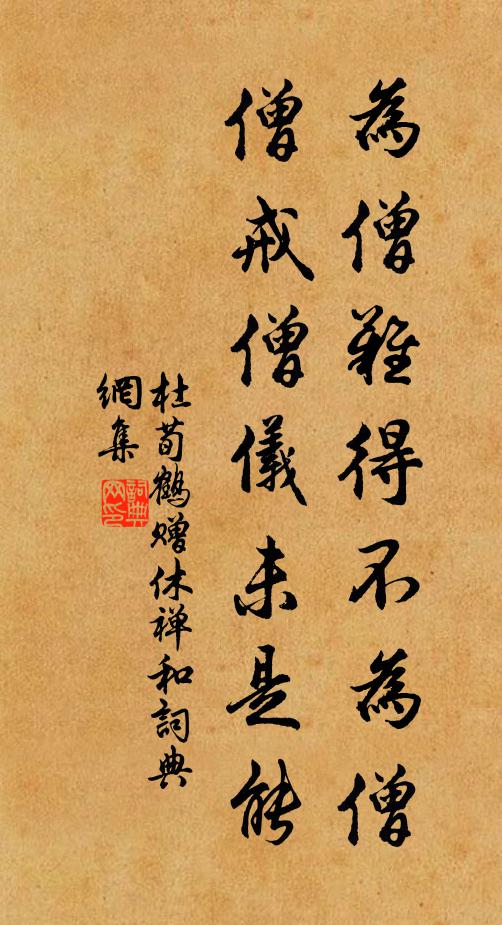 為僧難得不為僧
僧戒僧儀未是能
杜荀鶴贈休禅和詞典
網集
詞典
網印